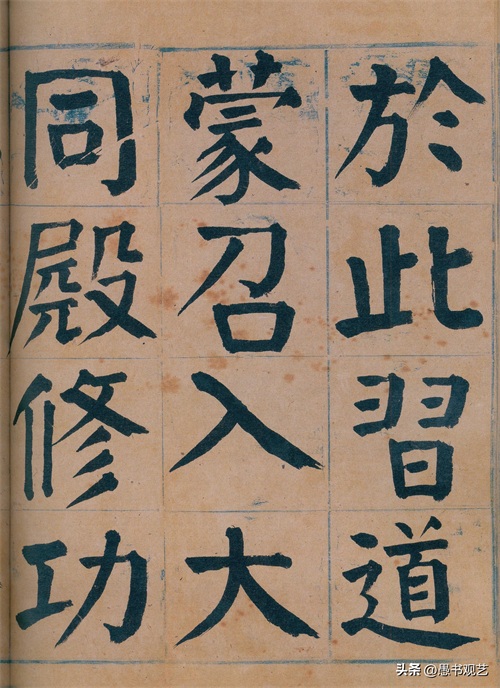 於此習道
蒙召入大
同殿修功
头条 @愚书观艺